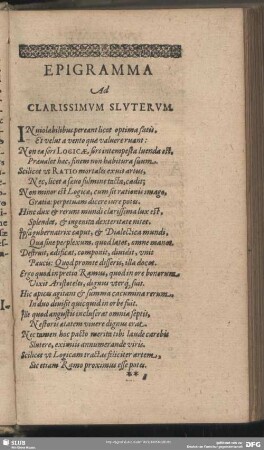 EPIGRAMMA
Ad
CLARISSIMVM SLVTERVM.
INviolabilibus pereant licet optima fatis,
Et velut a vento quæ valuere ruant:
Non ea sors LOGICÆ, sors intempesta luenda est,
Prævalet hæc, finem non habitura suum.
Scilicet ut RATIO mortales exuit artus,
Nec, licet a sævo fulmine tacta, cadit;
Non minor est LOGICÆ, cum sit rationis imago,
Gratia: perpetuam dicere jure potes.
Hinc dux & rerum mundi clarissima lux est,
Splendor, & ingenita dexteritate micat.
Ipsa gubernatrix caput, & Dialectica mundi,
Qua sine perplexum, quod latet, omne manet.
Destruit, ædificat, componit, dividit, unit
Paucis: Quod promte disseris, illa docet.
Ergo quod in pretio Ramus, quod in ore bonorum
Vixit Aristoteles, dignus uterq; fuit.
Hic apices agitans & summa cacumina rerum,
Indivduisit quicquid in orbe fuit.
Ille quod angustis incluserat omnia septis,
Nestoris ætatem vivere dignus erat.
Nec tamen hoc pacto merita tibi laude carebis
Slutere, eximiis annumerande viris.
Scilicet ut Logicam tractas feliciter artem,
Sic etiam Ramo proximus esse potes.
**